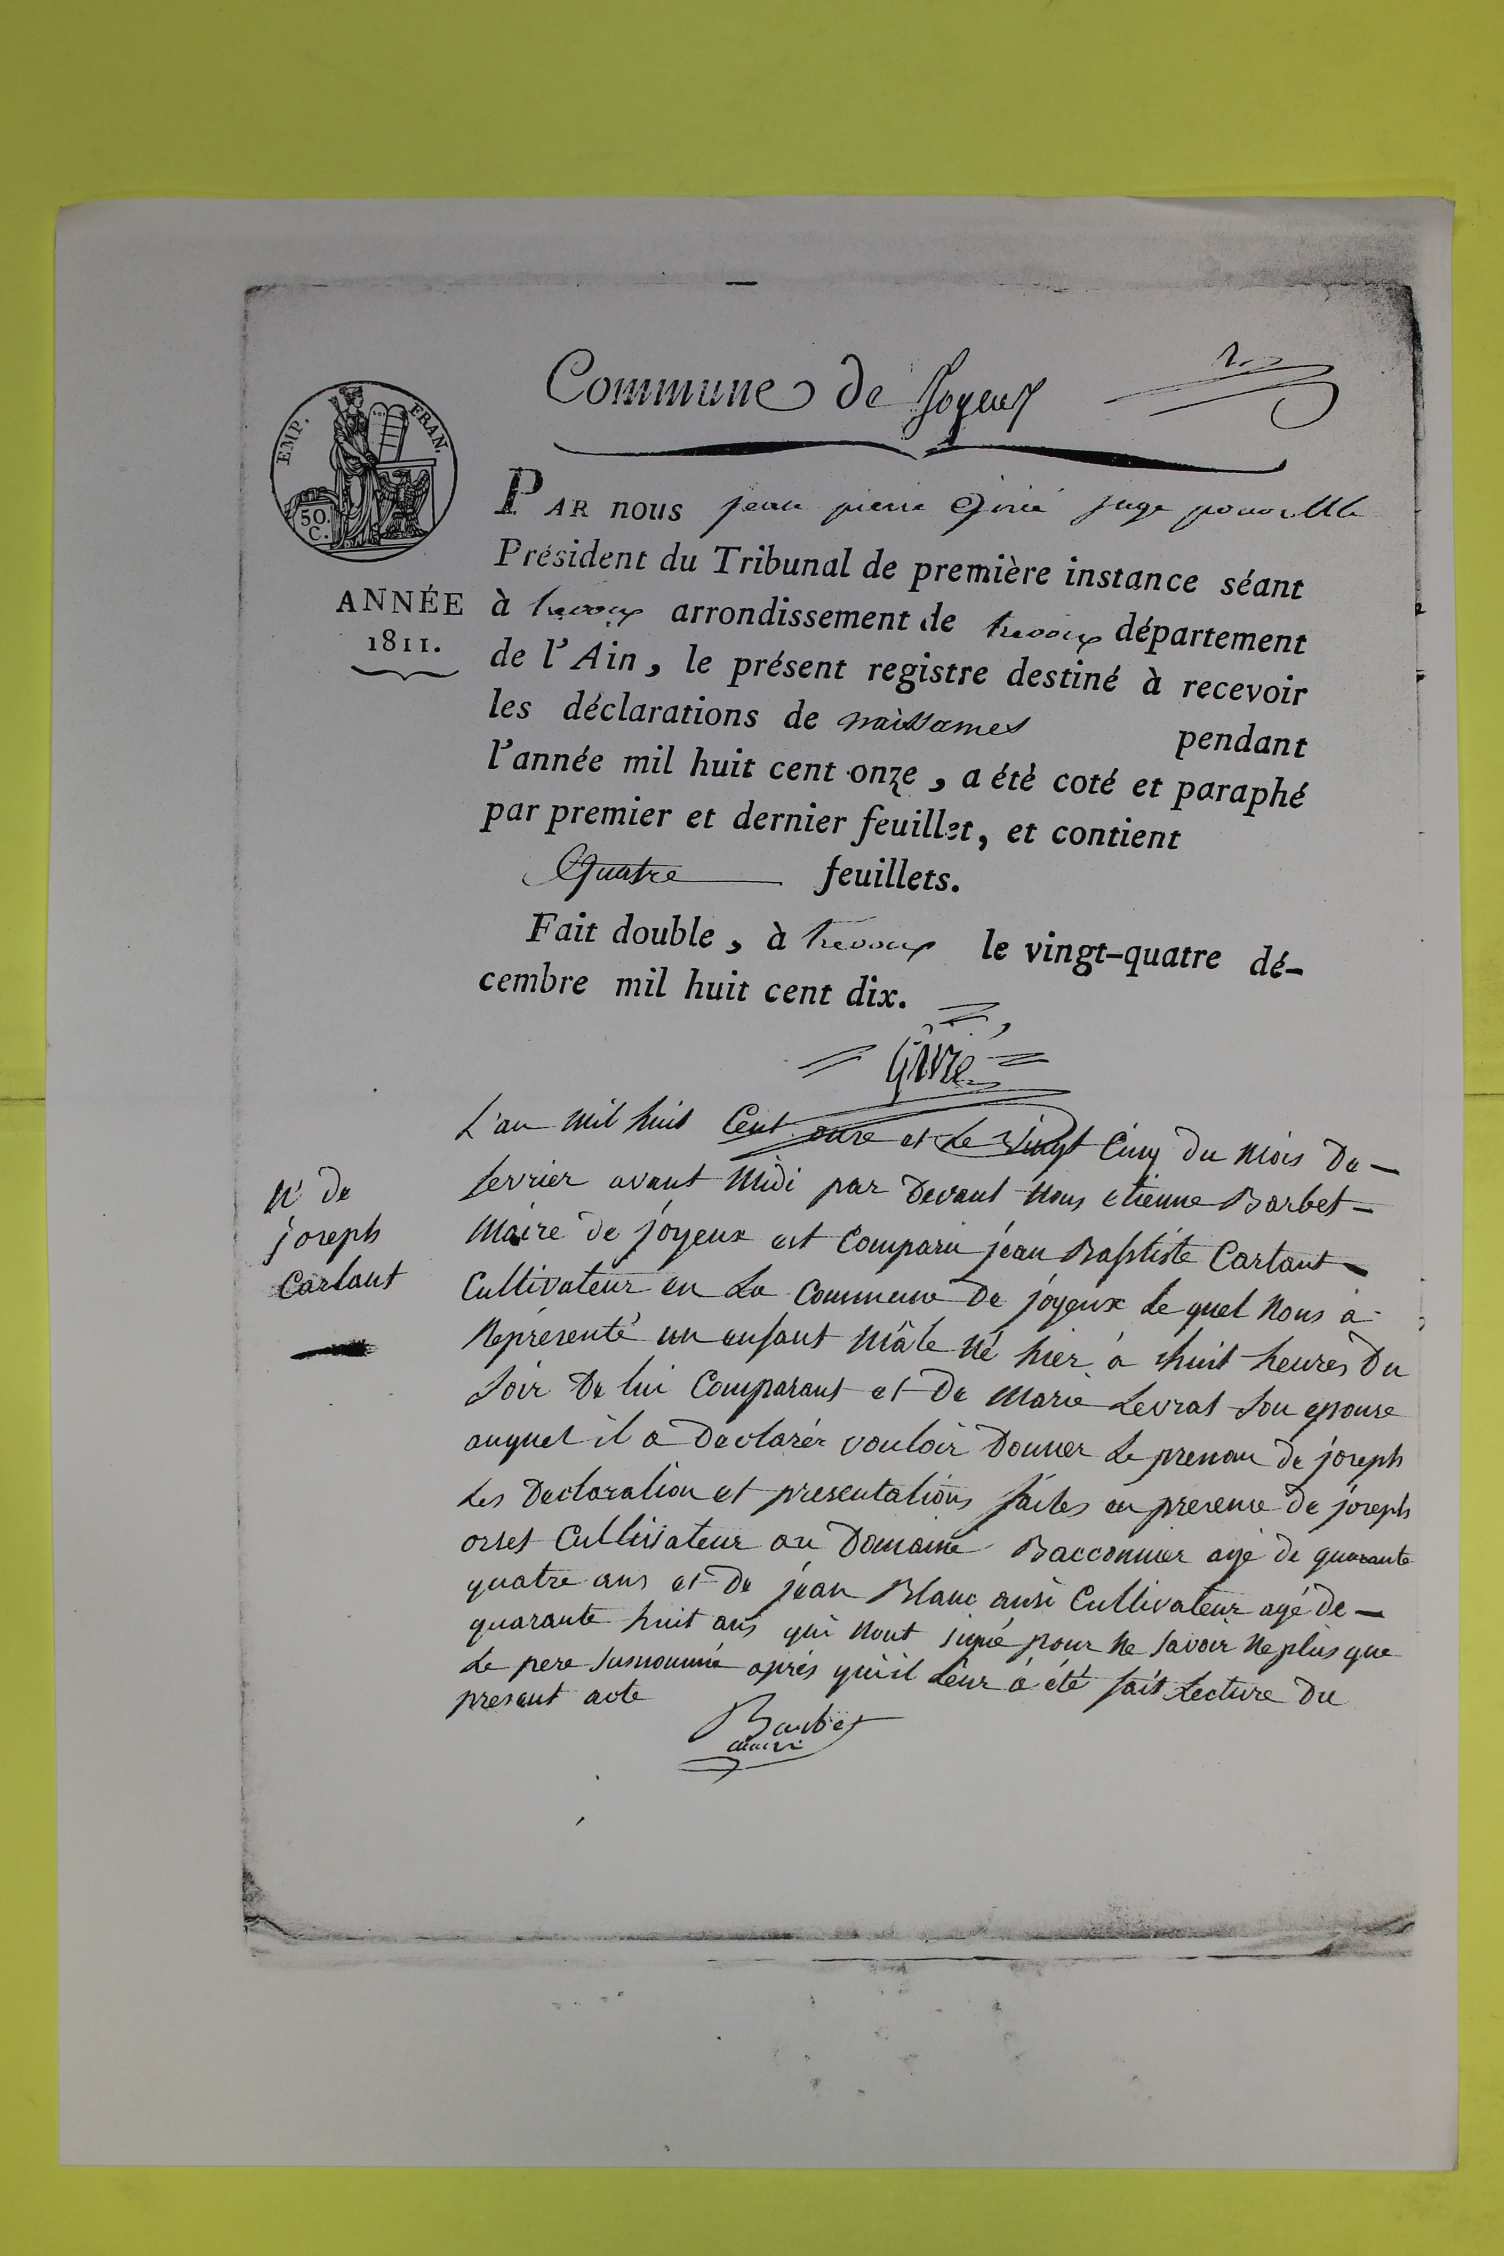 Commune de Joyeux
EMP. FRAN.
50.
C.
ANNÉE
1811.
PAR nous jean pierre Givré juge pour le
Président du Tribunal de première instance séant
à trevoux arrondissement de trevoux département
de l'Ain, le présent registre destiné à recevoir
les déclarations de naissances pendant
l'année mil huit cent onze, a été coté et paraphé
par premier et dernier feuillet, et contient
Quatre feuillets.
Fait double, à trevoux le vingt-quatre dé-
cembre mil huit cent dix.
Givré
N de
joseph
Carlant
L'an mil huit Cent onze et Le Vingt Cinq du mois De
fevrier avant Midi par Devant Nous etienne Barbet
Maire de joyeux est Comparu jean Baptiste Carlant
Cultivateur en La Commune De joyeux Le quel Nous a
Représenté un enfant Mâle Né hier à huit heures Du
Soir De lui Comparant et De Marie Levrat Son epouse
auquel il a Declarér vouloir Donner Le prenom De joseph
Les Declaration et presentations faites en presence De joseph
orset Cultivateur au Domaine Bacconnier agé de quarante
quatre ans et De jean Blanc ausi Cultivateur agé De
quarante huit ans qui Nont signé pour Ne Savoir Ne plus que
Le pere Susnommé après qu'il Leur à été fait Lecture Du
present acte
Barbet
maire